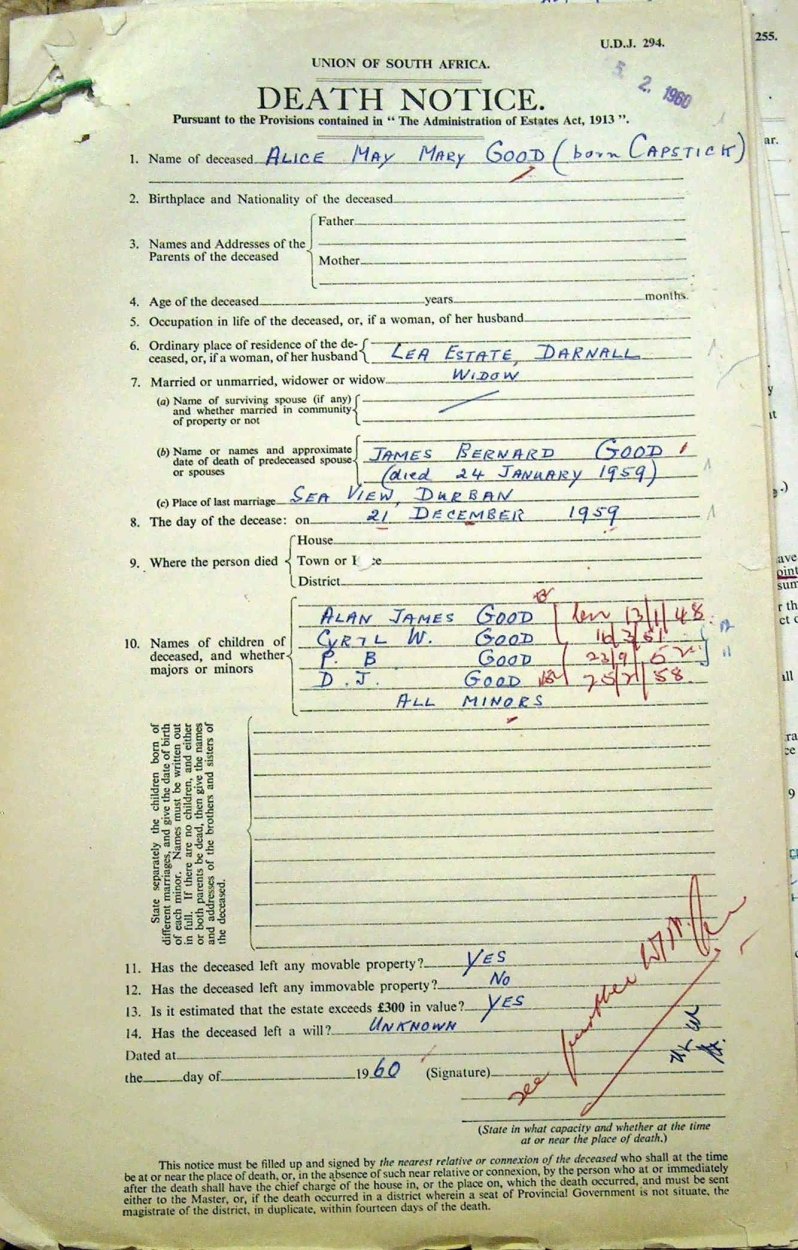 255.
U.D.J. 294.
UNION OF SOUTH AFRICA.
2. 1960
DEATH NOTICE.
Pursuant to the Provisions contained in “ The Administration of Estates Act, 1913 ”.
1. Name of deceased ALICE MAY MARY GOOD (born CAPSTICK)
2. Birthplace and Nationality of the deceased
3. Names and Addresses of the Parents of the deceased
Father
Mother
4. Age of the deceased years months.
5. Occupation in life of the deceased, or, if a woman, of her husband
6. Ordinary place of residence of the de-
ceased, or, if a woman, of her husband LEA ESTATE, DARNALL
7. Married or unmarried, widower or widow WIDOW
(a) Name of surviving spouse (if any)
and whether married in community
of property or not
(b) Name or names and approximate
date of death of predeceased spouse
or spouses
JAMES BERNARD GOOD
(died 24 JANUARY 1959)
(c) Place of last marriage SEA VIEW, DURBAN
8. The day of the decease: on 21 DECEMBER 1959
9. Where the person died
House
Town or
District
10. Names of children of
deceased, and whether
majors or minors
ALAN JAMES GOOD 13/1/48
CYRIL W. GOOD 16/3/51
P. B GOOD 23/9/52
D. J. GOOD 58
ALL MINORS
State separately the children born of
different marriages, and give the date of birth
of each minor. Names must be written out
in full. If there are no children, and either
or both parents be dead, then give the names
and addresses of the brothers and sisters of
the deceased.
11. Has the deceased left any movable property? YES
12. Has the deceased left any immovable property? NO
13. Is it estimated that the estate exceeds £300 in value? YES
14. Has the deceased left a will? UNKNOWN
Dated at
the day of 1960 (Signature)
see further
(State in what capacity and whether at the time
at or near the place of death.)
This notice must be filled up and signed by the nearest relative or connexion of the deceased who shall at the time
be at or near the place of death, or, in the absence of such near relative or connexion, by the person who at or immediately
after the death shall have the chief charge of the house in, or the place on, which the death occurred, and must be sent
either to the Master, or, if the death occurred in a district wherein a seat of Provincial Government is not situate, the
magistrate of the district, in duplicate, within fourteen days of the death.